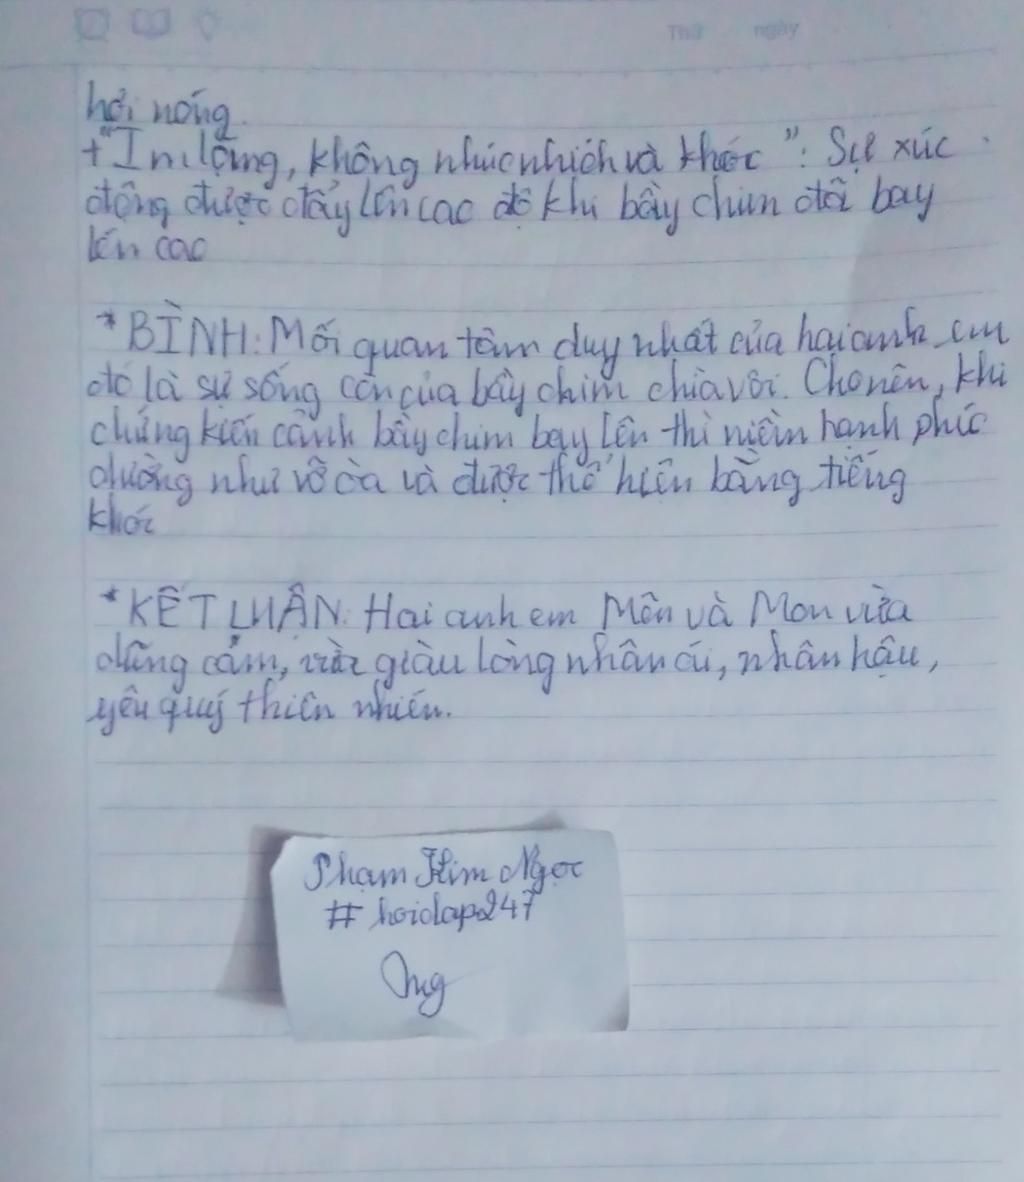 Thứ ngày
hơi nóng.
+"Im lặng, không nhúc nhích và khóc": Sự xúc
động được đẩy lên cao độ khi bầy chim đã bay
lên cao
*BÌNH: Mối quan tâm duy nhất của hai anh em
đó là sự sống còn của bầy chim chìa vôi. Cho nên, khi
chứng kiến cảnh bầy chim bay lên thì niềm hạnh phúc
dường như vỡ òa và được thể hiện bằng tiếng
khóc
*KẾT LUẬN: Hai anh em Mên và Mon vừa
dũng cảm, vừa giàu lòng nhân ái, nhân hậu,
yêu quý thiên nhiên.
Phạm Kim Ngọc
# hoidap247